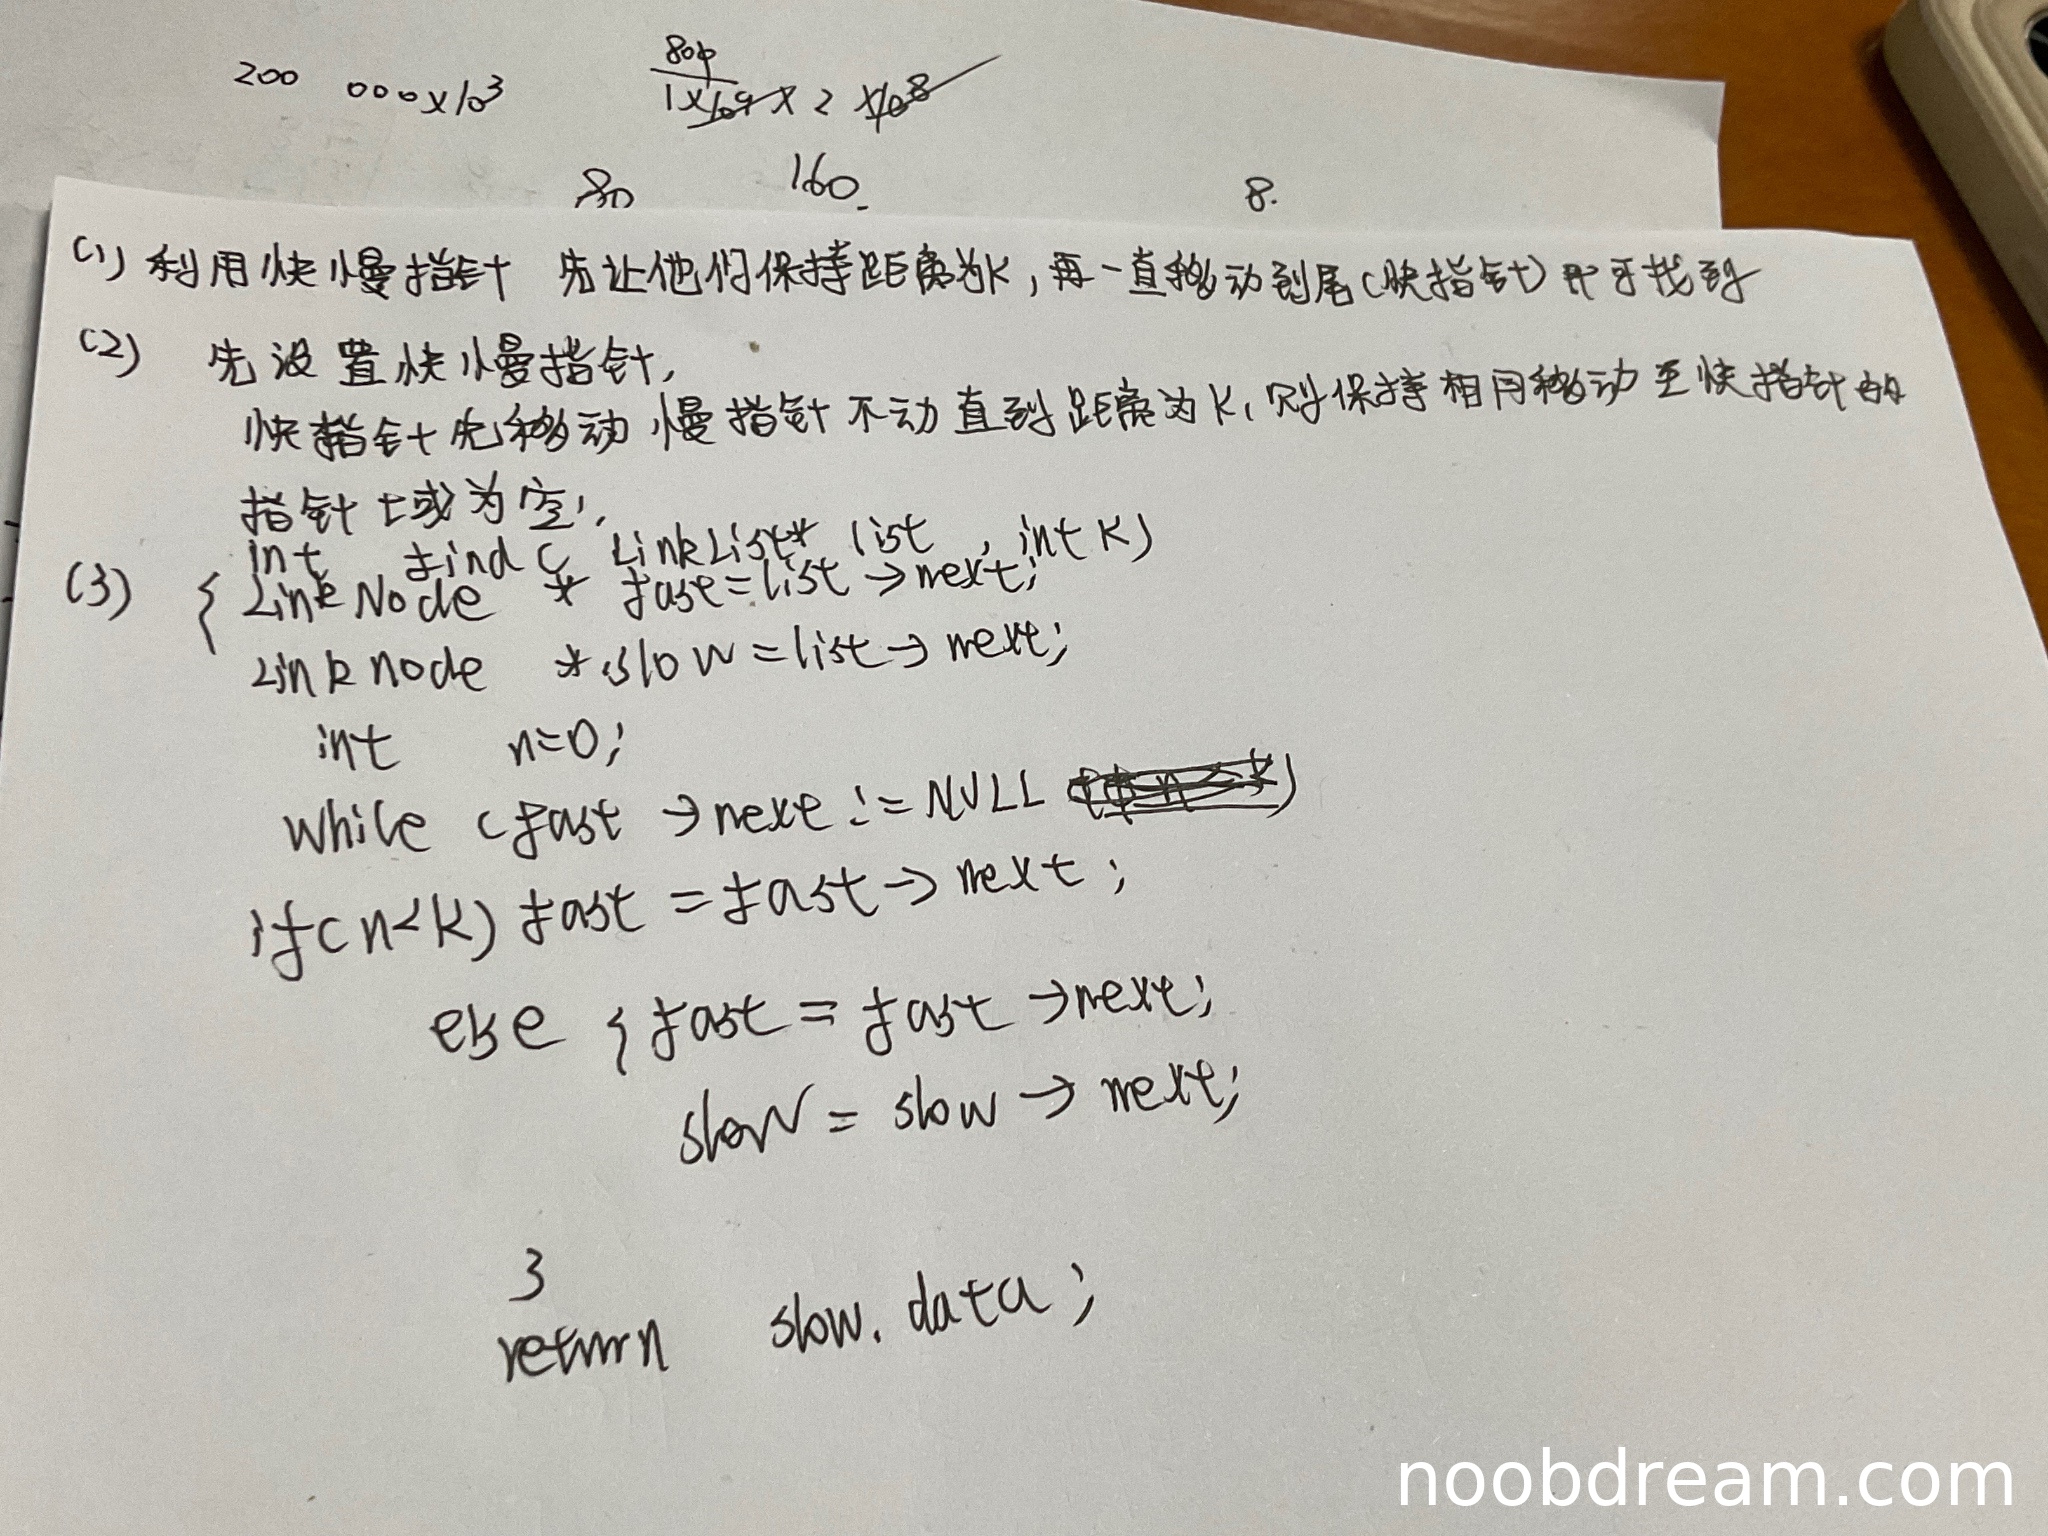 200 000x10³
800
1x10⁹x 2 x10⁸
80 160. 8.
(1) 利用快慢指针 先让他们保持距离为K，再一直移动到尾(快指针)即可找到
(2) 先设置快慢指针，
快指针先移动 慢指针不动直到距离为K，则保持相同移动至快指针的
指针 域为空，
int find( LinkList* list , int K)
(3) { LinkNode * fast=list->next;
LinkNode *slow=list->next;
int n=0;
while (fast ->next != NULL )
if(n<K) fast = fast->next ;
else { fast = fast ->next;
slow = slow -> next;
}
return slow. data ;
noobdream.com